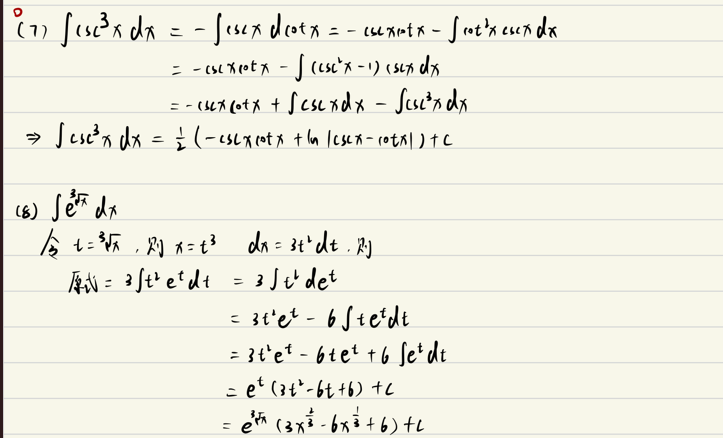 (7) ∫csc³x dx = -∫cscx dcotx = -cscxcotx - ∫cot²x cscx dx
= -cscxcotx - ∫(csc²x-1)cscx dx
= -cscxcotx + ∫cscxdx - ∫csc³x dx
⇒ ∫csc³x dx = 1/2 (-cscxcotx + ln|cscx-cotx|) + C
(8) ∫e^∛x dx
令 t=∛x, 则 x=t³ dx=3t²dt, 则
原式 = 3∫t²e^t dt = 3∫t² de^t
= 3t²e^t - 6∫te^t dt
= 3t²e^t - 6te^t + 6∫e^t dt
= e^t (3t²-6t+6) + C
= e^∛x (3x^(2/3) - 6x^(1/3) + 6) + C